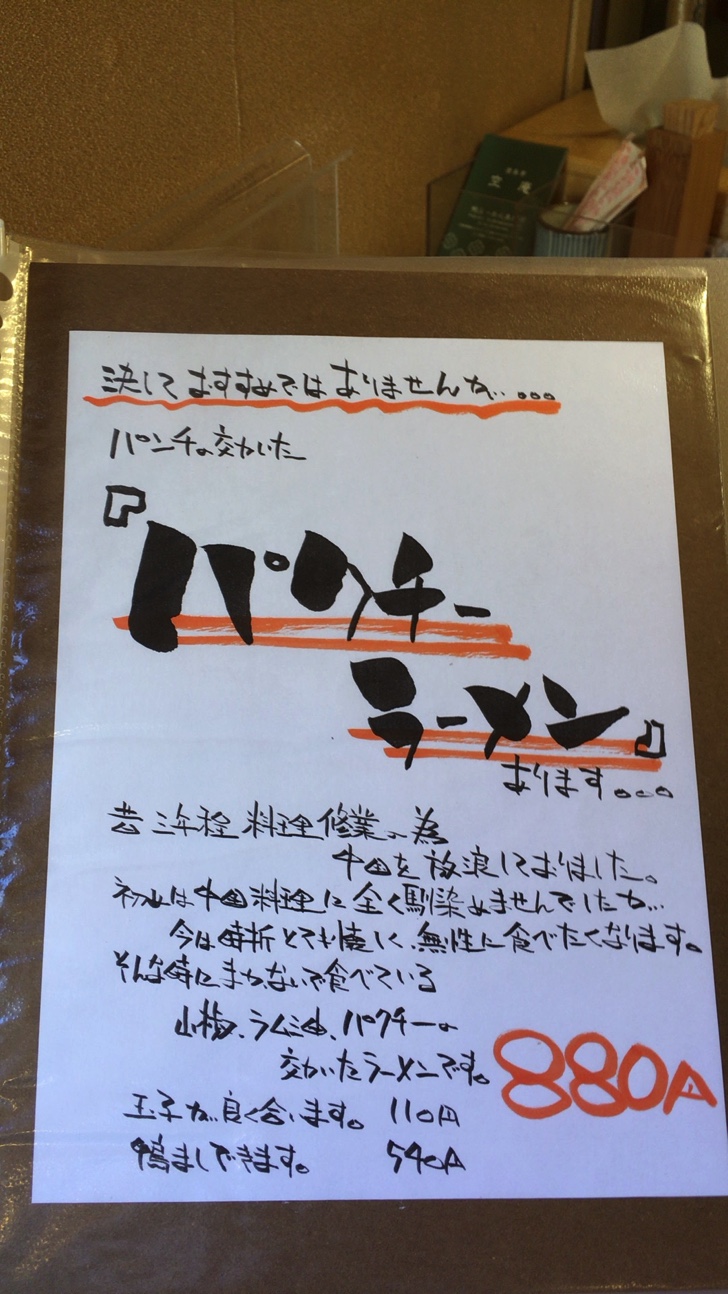 空庵
決しておすすめではありませんが...
パンチの効いた
『パクチー
ラーメン』
あります...
昔三年程料理修業の為
中国を放浪しておりました。
初めは中国料理に全く馴染めませんでしたが...
今は時折とても懐しく、無性に食べたくなります。
そんな時にまかないで食べている
山椒、ラム油、パクチーの
効いたラーメンです。
880円
玉子が良く合います。 110円
鴨ましできます。 540円